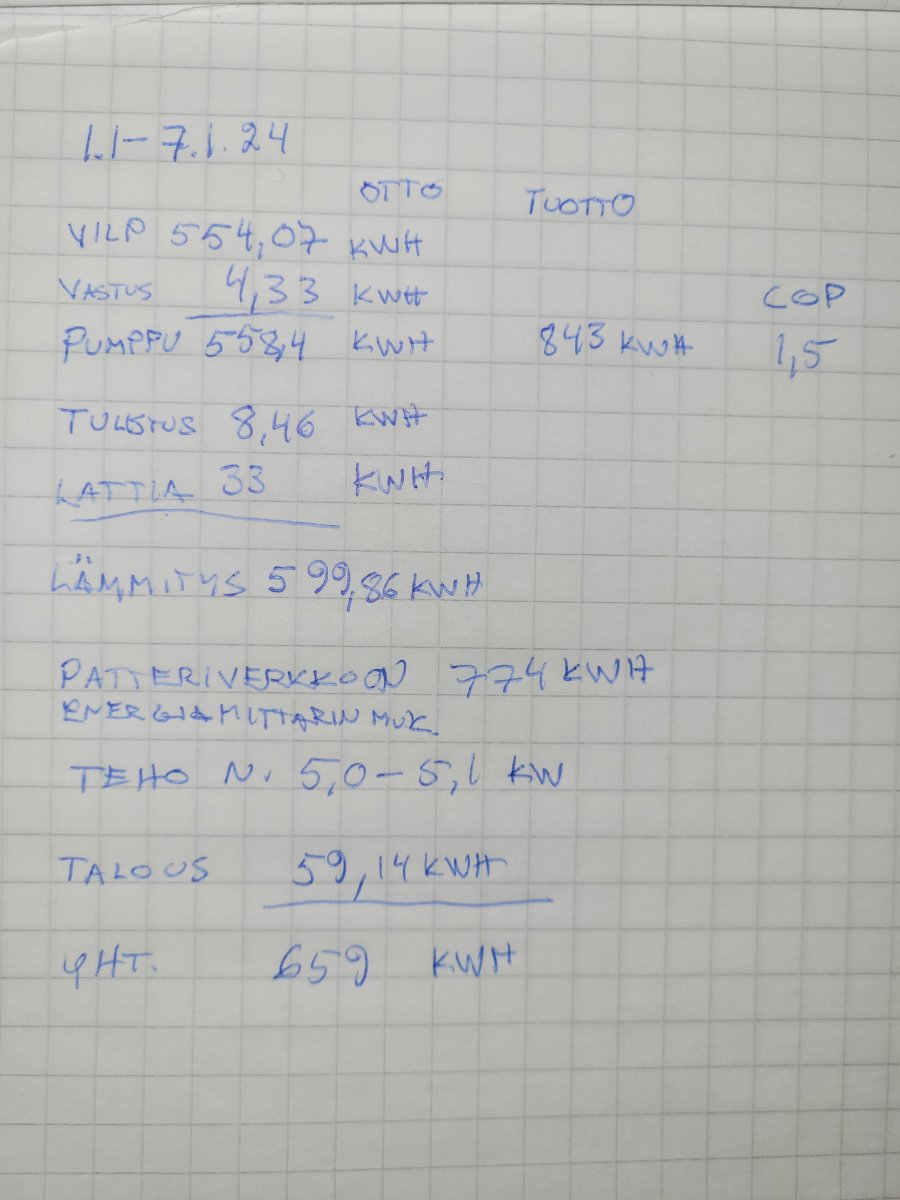 1.1-7.1.24
OTTO TUOTTO
VILP 554,07 KWH
VASTUS 4,33 KWH COP
PUMPPU 558,4 KWH 843 KWH 1,5
TULISTUS 8,46 KWH
LATTIA 33 KWH
LÄMMITYS 599,86 KWH
PATTERIVERKKOON 774 KWH
ENERGIAMITTARIN MUK.
TEHO N. 5,0-5,1 KW
TALOUS 59,14 KWH
YHT. 659 KWH